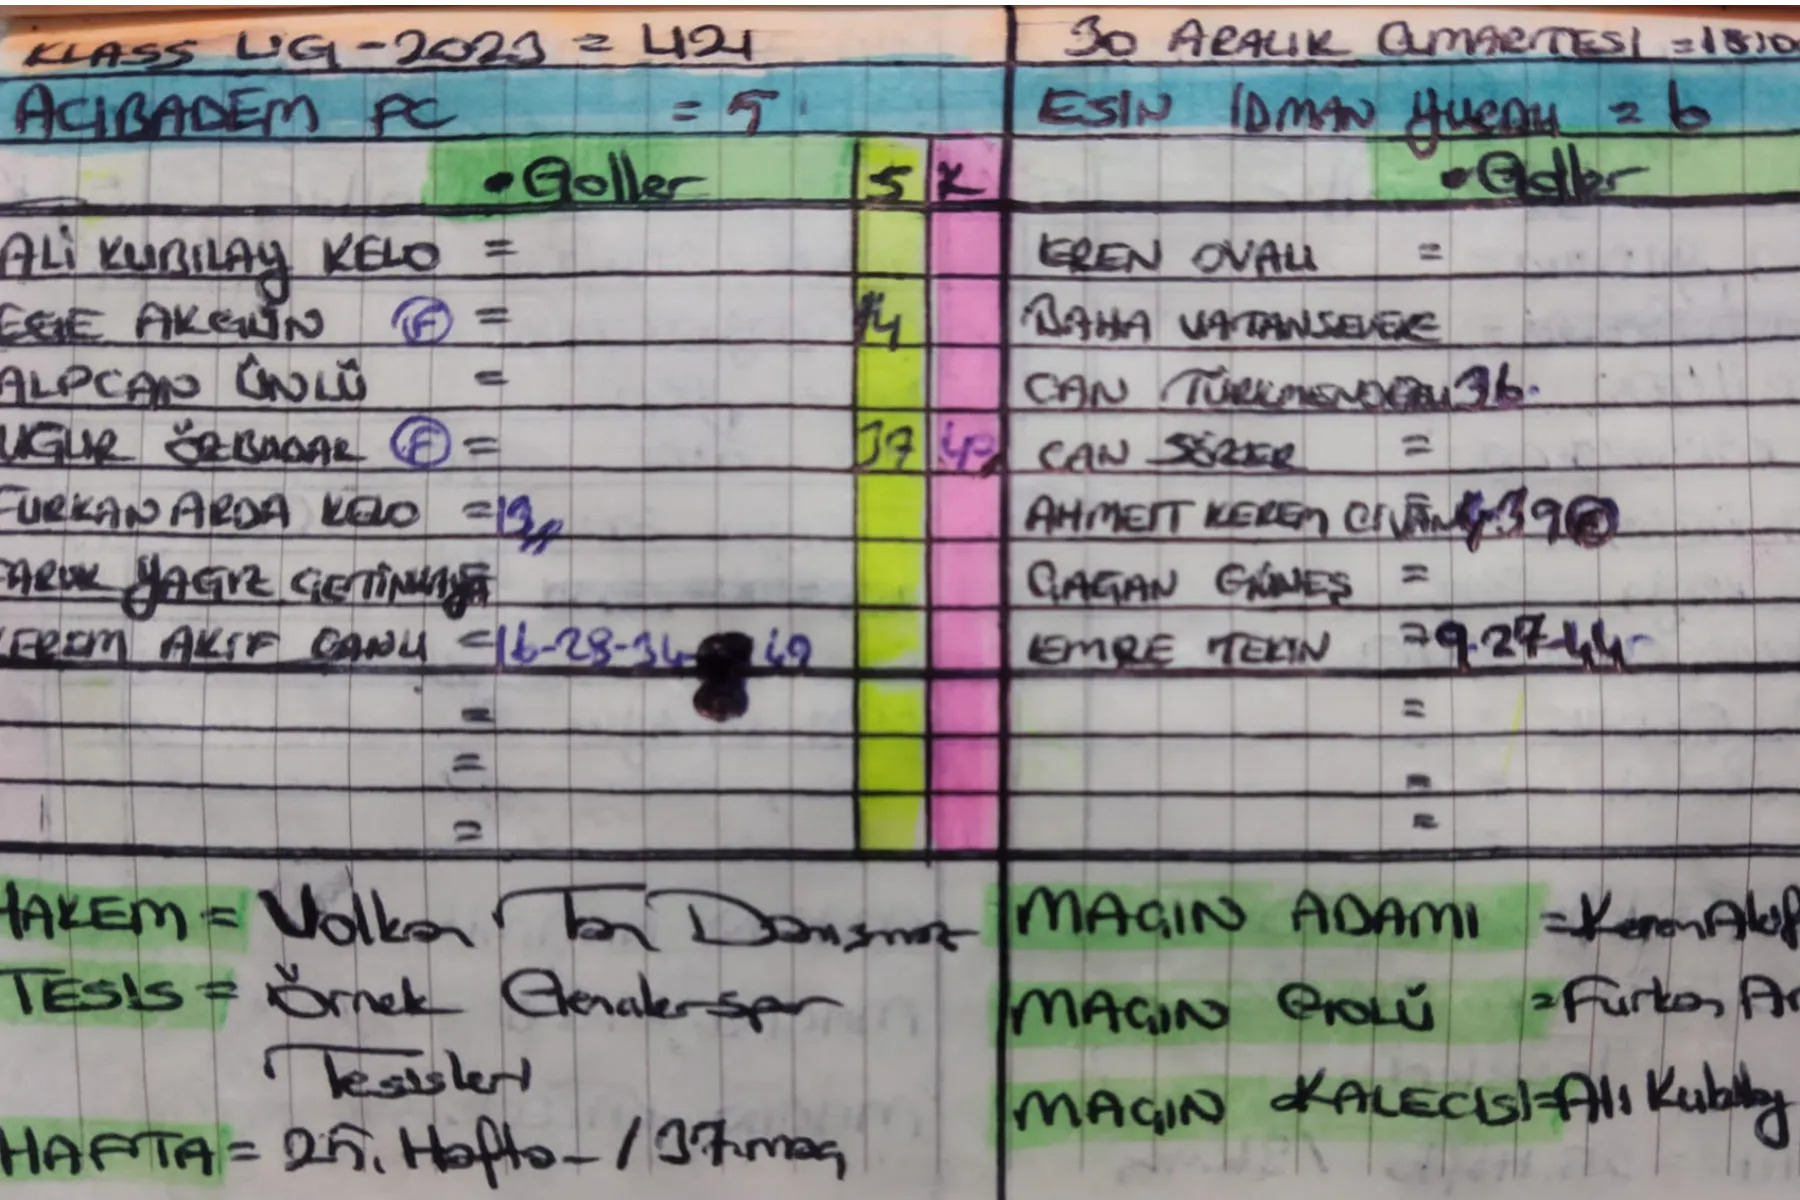 KLASS LİG - 2023 = 421
30 ARALIK CUMARTESİ = 18:10
ACIBADEM FC = 5
ESİN İDMAN YURDU = 6
• Goller S K
• Goller
ALİ KUBİLAY KELO =
EREN OVALI =
EGE AKGÜN (F) = 14
BAHA VATANSEVER
ALPCAN ÜNLÜ =
CAN TÜRKMENOĞLU 36-
UĞUR ÖZBADAR (F) = 37 40
CAN SÖZER =
FURKAN ARDA KELO = 13
AHMET KEREM CİVAN 39
FARUK YAGIZ ÇETİNKAYA
ÇAGAN GÜNEŞ =
KEREM AKİF CANLI = 16-28-34 49
EMRE TEKİN = 9-27-44-
=
=
=
=
=
=
HAKEM = Volkan Tan Danışmaz
MAÇIN ADAMI = Kerem Akif
TESİS = Örnek Gençlerspor
Tesisleri
MAÇIN GOLÜ = Furkan Ar
MAÇIN KALECİSİ = Ali Kubilay
HAFTA = 25. Hafta - / 37. maç